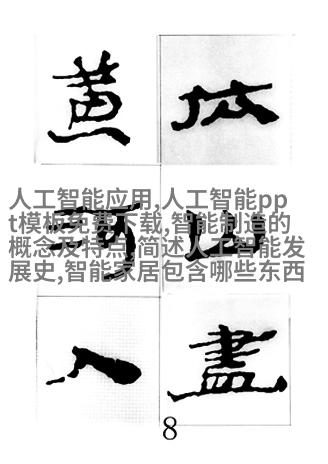 依山盡
黄河入
人工智能应用,人工智能pp
t模板免费下载,智能制造的
概念及特点,简述人工智能发
展史,智能家居包含哪些东西
8